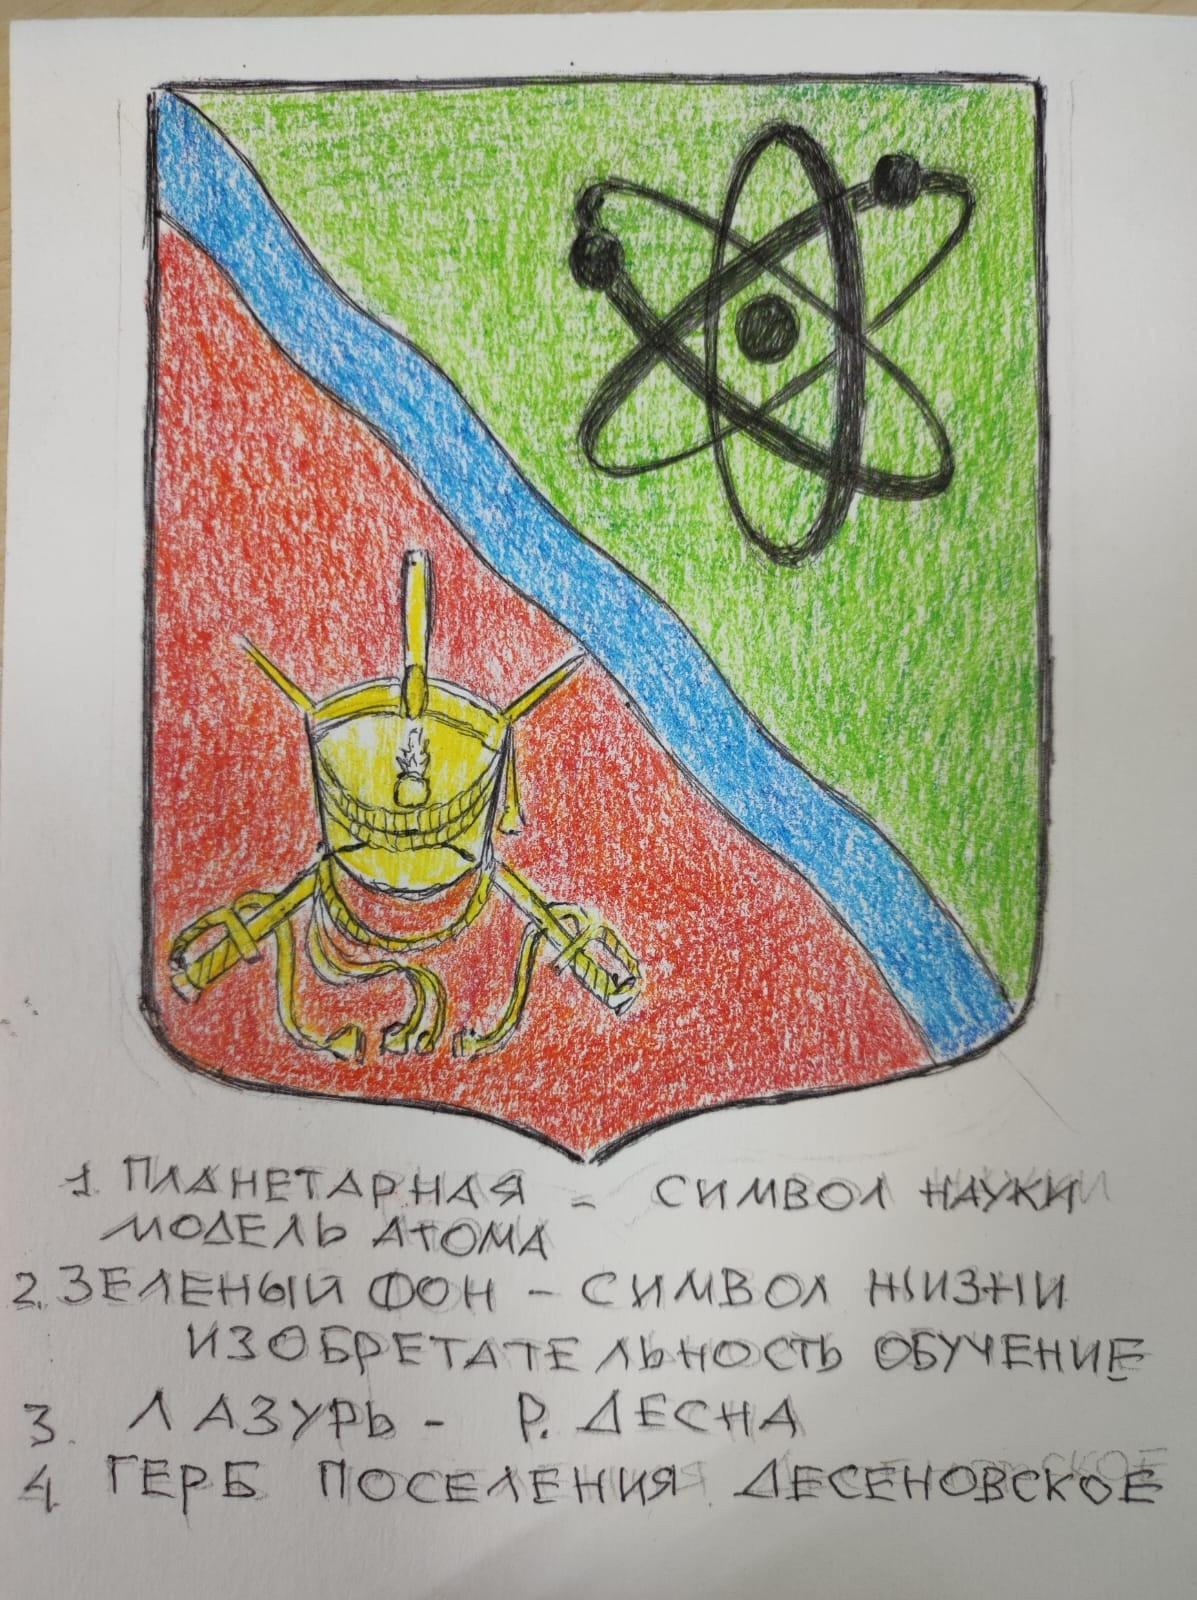 1. ПЛАНЕТАРНАЯ = СИМВОЛ НАУКИ
МОДЕЛЬ АТОМА
2. ЗЕЛЕНЫЙ ФОН - СИМВОЛ ЖИЗНИ
ИЗОБРЕТАТЕЛЬНОСТЬ ОБУЧЕНИЕ
3. ЛАЗУРЬ - Р. ДЕСНА
4. ГЕРБ ПОСЕЛЕНИЯ ДЕСЕНОВСКОЕ